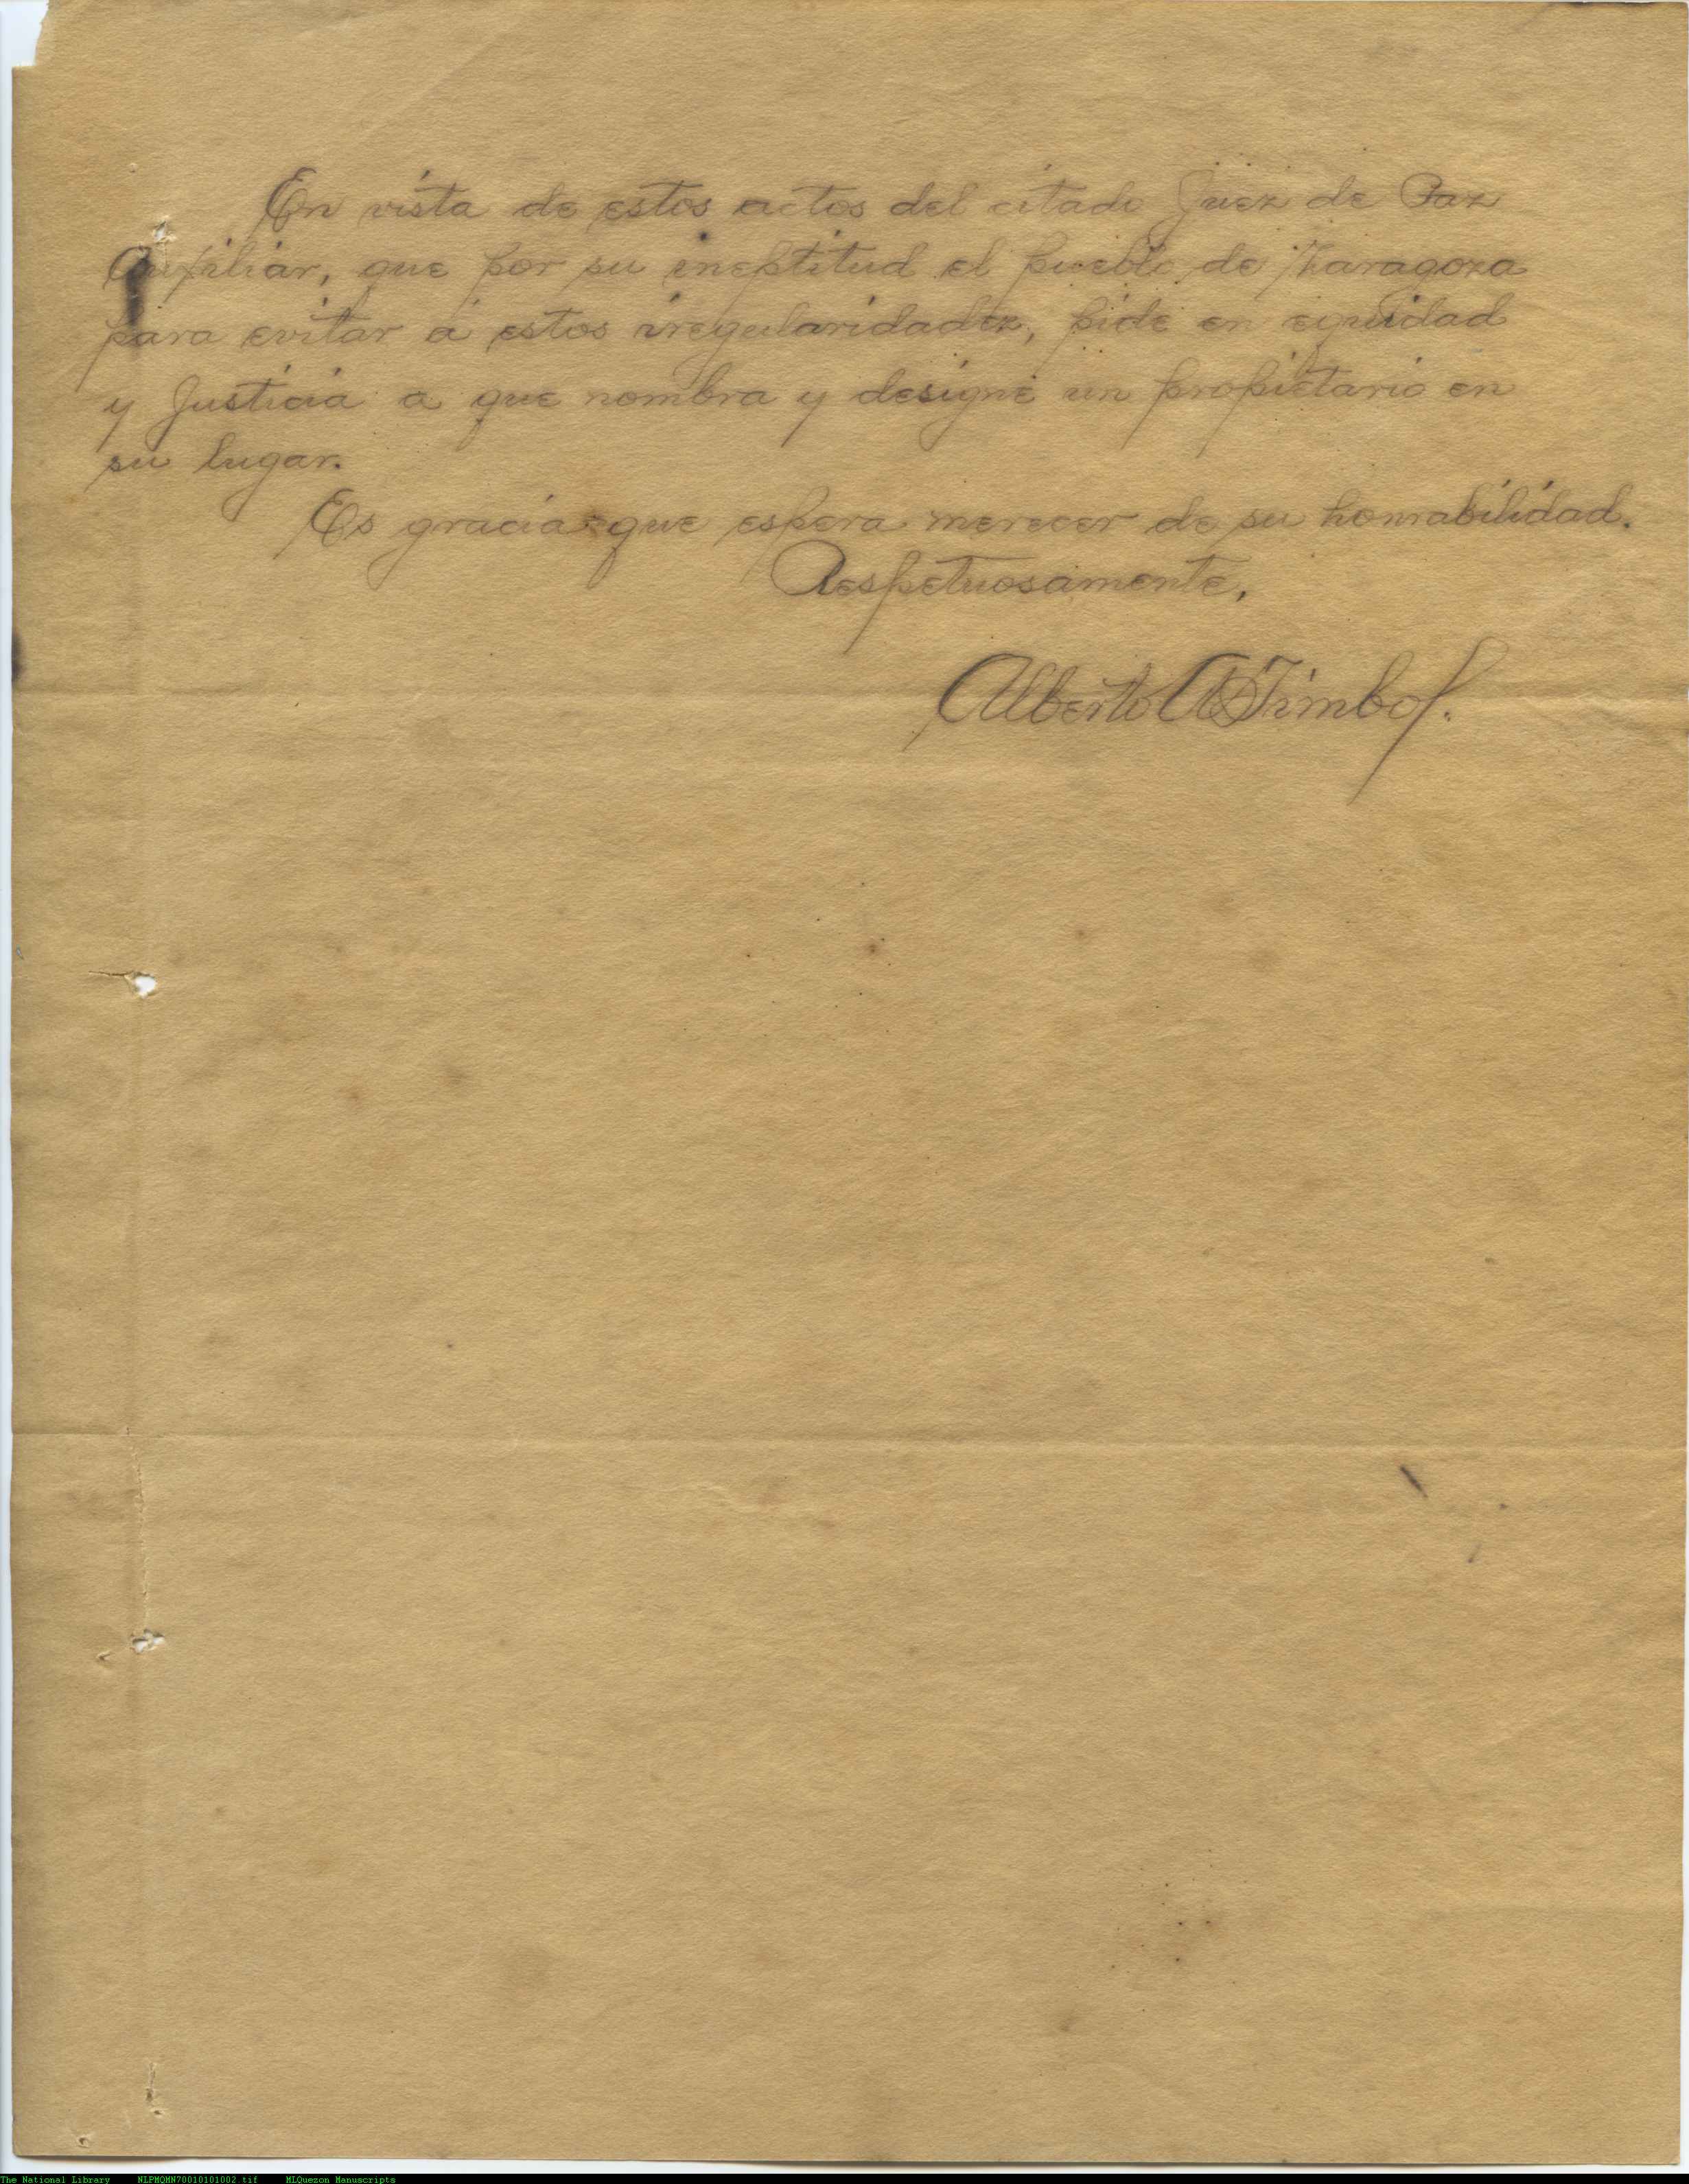 En vista de estos actos del citado Juez de Paz
Auxiliar, que por su ineptitud el pueblo de Zaragoza
para evitar á estos iregularidadez, pide en equidad
y Justicia a que nombra y designe un propietario en
su lugar.
Es gracia que espera merecer de su honrabilidad.
Respetuosamente,
Alberto A Timbol.
The National Library NLPMQMN70010101002.tif MLQuezon Manuscripts